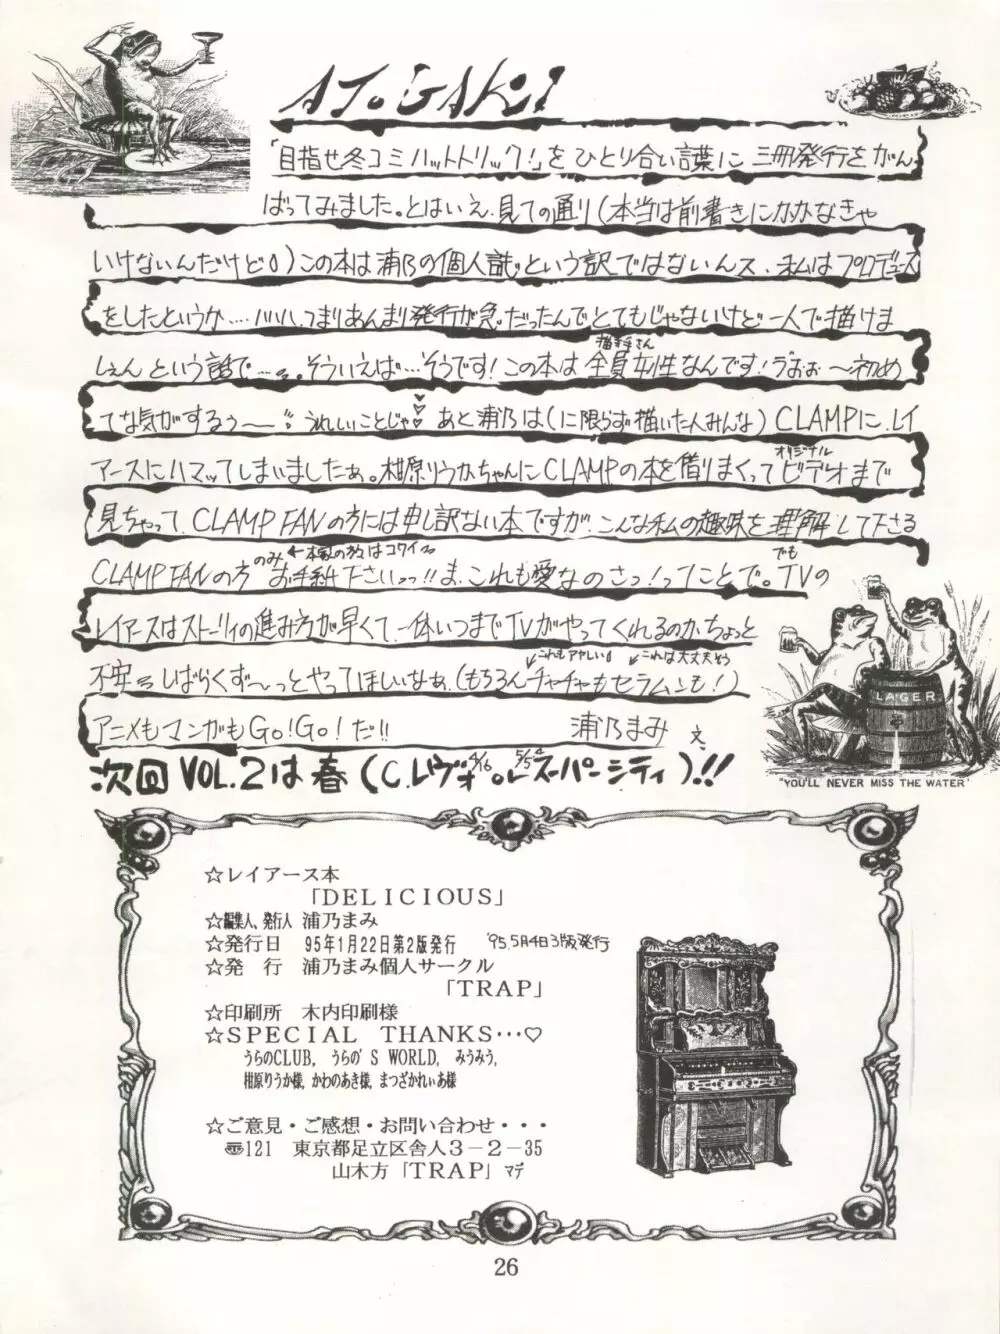 ATOGAKI
「目指せ冬コミハットトリック!」をひとり合い言葉に三冊発行をがん
ばってみました。とはいえ、見ての通り(本当は前書きにかかなきゃ
いけないんだけど)この本は浦乃の個人誌という訳ではないんス、私はプロデュース
をしたというか…ハハハ、つまりあんまり発行が急だったんでとてもじゃないけど一人で描けま
しぇんという話で…。そういえば…そうです!この本は全員女性なんです!うおぉ〜初め
描き手さん
てな気がするぅ〜うれしいことじゃ♡♡あと浦乃は(に限らず描いた人みんな)CLAMPに、レイ
アースにハマッてしまいましたぁ。柑原りうかちゃんにCLAMPの本を借りまくってビデオまで
オリジナル
見ちゃって、CLAMP FANの方には申し訳ない本ですが、こんな私の趣味を理解して下さる
CLAMP FANの方のみお手紙下さいっっ!!ま、これも愛なのさっ!ってことで。でもTVの
←本家の方はコワイ
レイアースはストーリィの進み方が早くて、一体いつまでTVがやってくれるのか、ちょっと
不安 しばらくず〜っとやってほしいなぁ。(もちろんチャチャもセラムンも!)
これもアヤしい これは大丈夫そう
アニメもマンガもGo!Go!だ!! 浦乃まみ 文
次回VOL.2は春(C.レヴォ4/16 or 5/4スーパーシティ)!!
LAGER
"YOU'LL NEVER MISS THE WATER"
☆レイアース本
「DELICIOUS」
☆編集人、発行人 浦乃まみ
☆発行日 95年1月22日第2版発行 '95.5月4日3版発行
☆発 行 浦乃まみ個人サークル
「TRAP」
☆印刷所 木内印刷様
☆SPECIAL THANKS…♡
うらのCLUB, うらの'S WORLD, みうみう,
柑原りうか様, かわのあき様, まつざかれぃあ様
☆ご意見・ご感想・お問い合わせ・・・
〠121 東京都足立区舎人3-2-35
山木方「TRAP」マデ
26